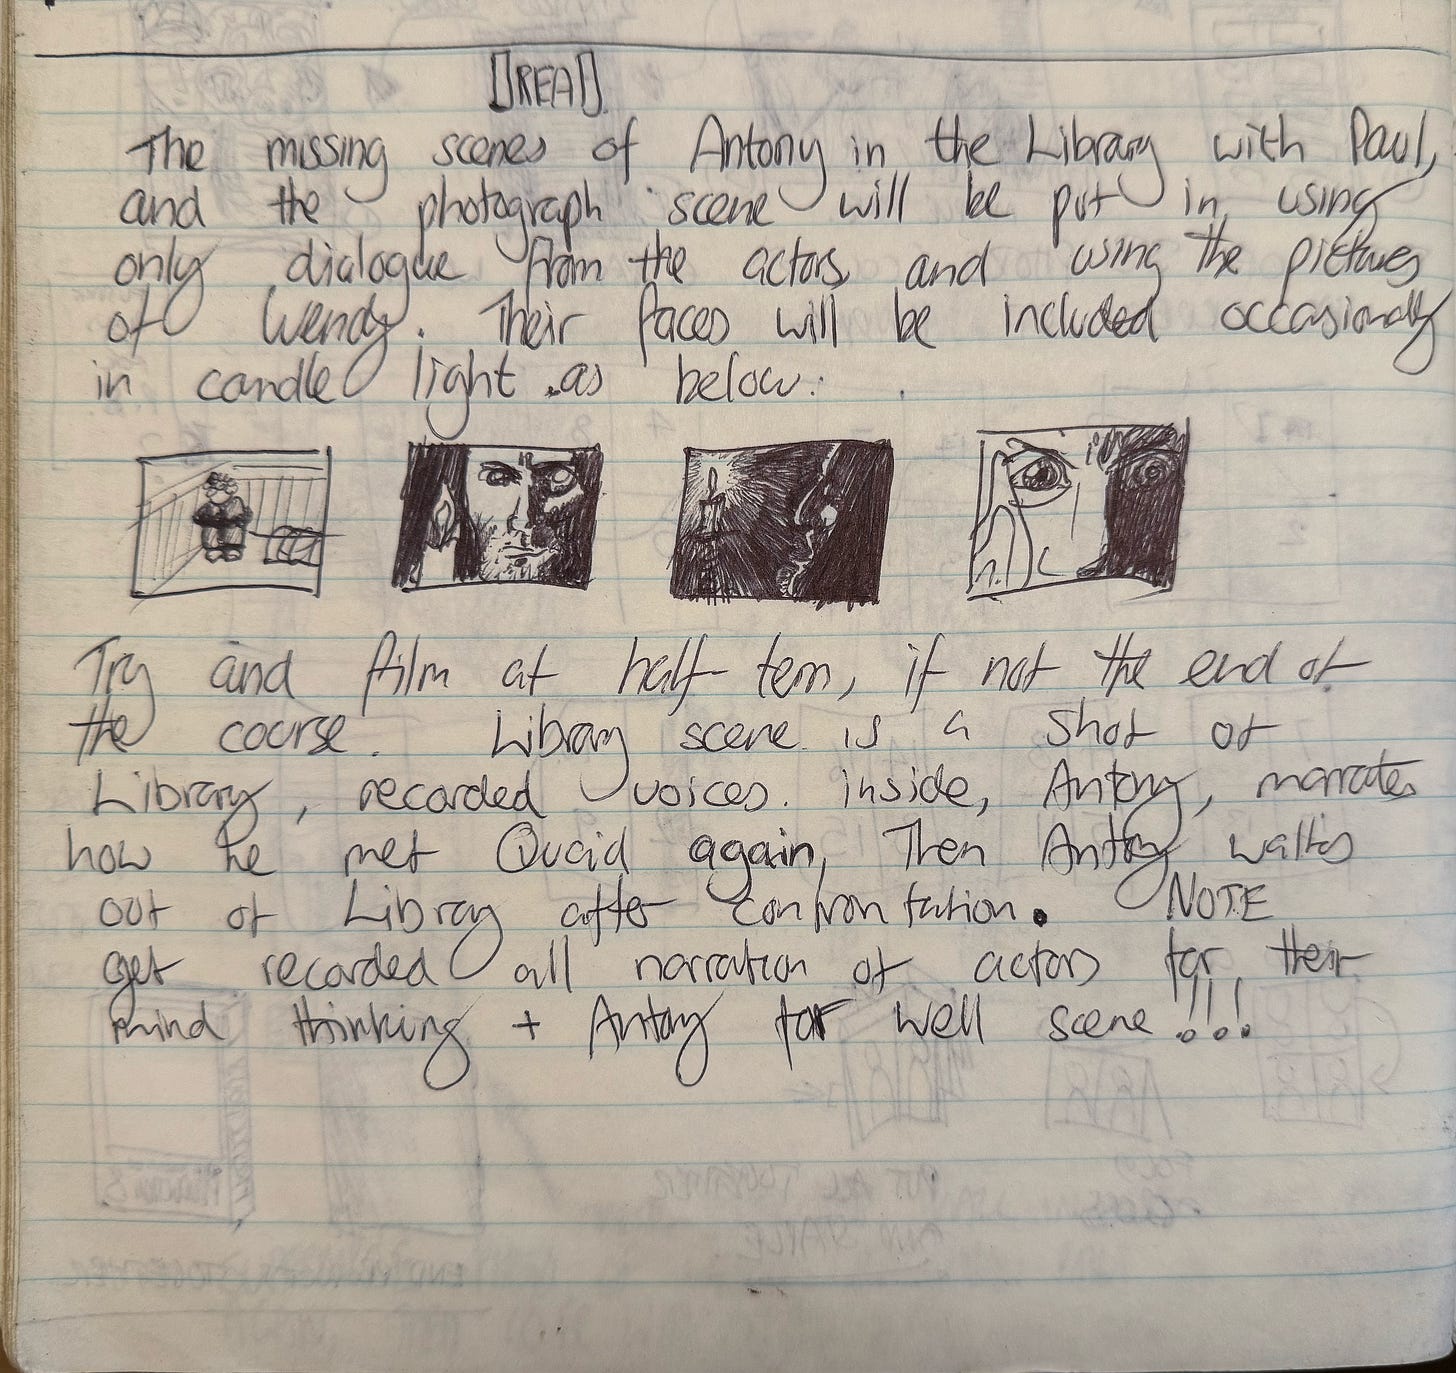 DREAD
The missing scenes of Antony in the Library with Paul,
and the photograph scene will be put in, using
only dialogue from the actors, and using the pictures
of Wendy. Their faces will be included occasionally
in candle light as below:
Try and film at half term, if not the end of
the course. Library scene is a shot of
Library, recorded voices inside, Antony, narrates
how he met Quaid again, Then Antony walks
out of Library after confrontation. NOTE
get recorded all narration of actors for their
mind thinking + Antony for well scene!!!
PUT ALL TOGETHER
AND STAPLE